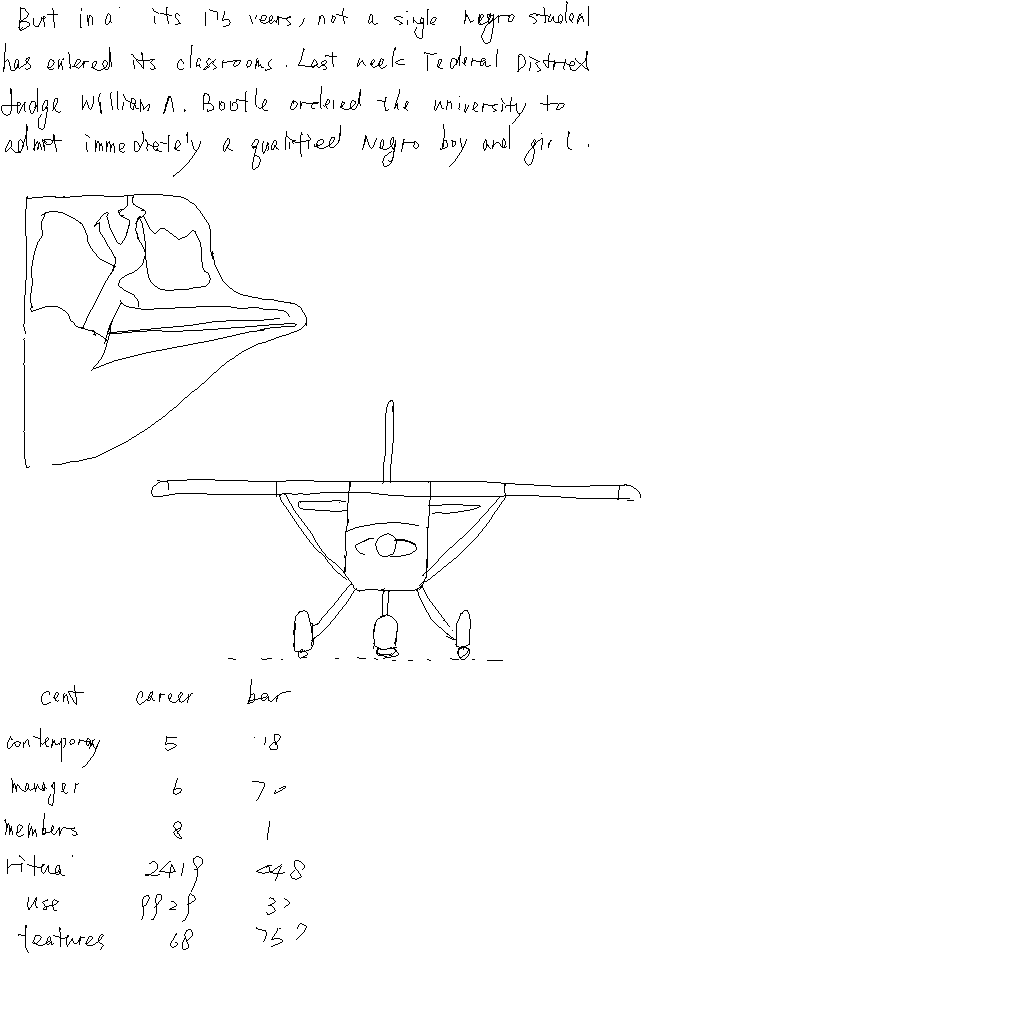 But in a its 175 years, not a single negro student
has entered its classrooms. Last week Federal District
Judge William A. Bootle ordered the university to
admit immediately a qualified Negro boy and girl.
cent career bar
contemporary 5 18
manager 6 70
members 8 1
ritua 2419 448
use 9929 37
features 68 757